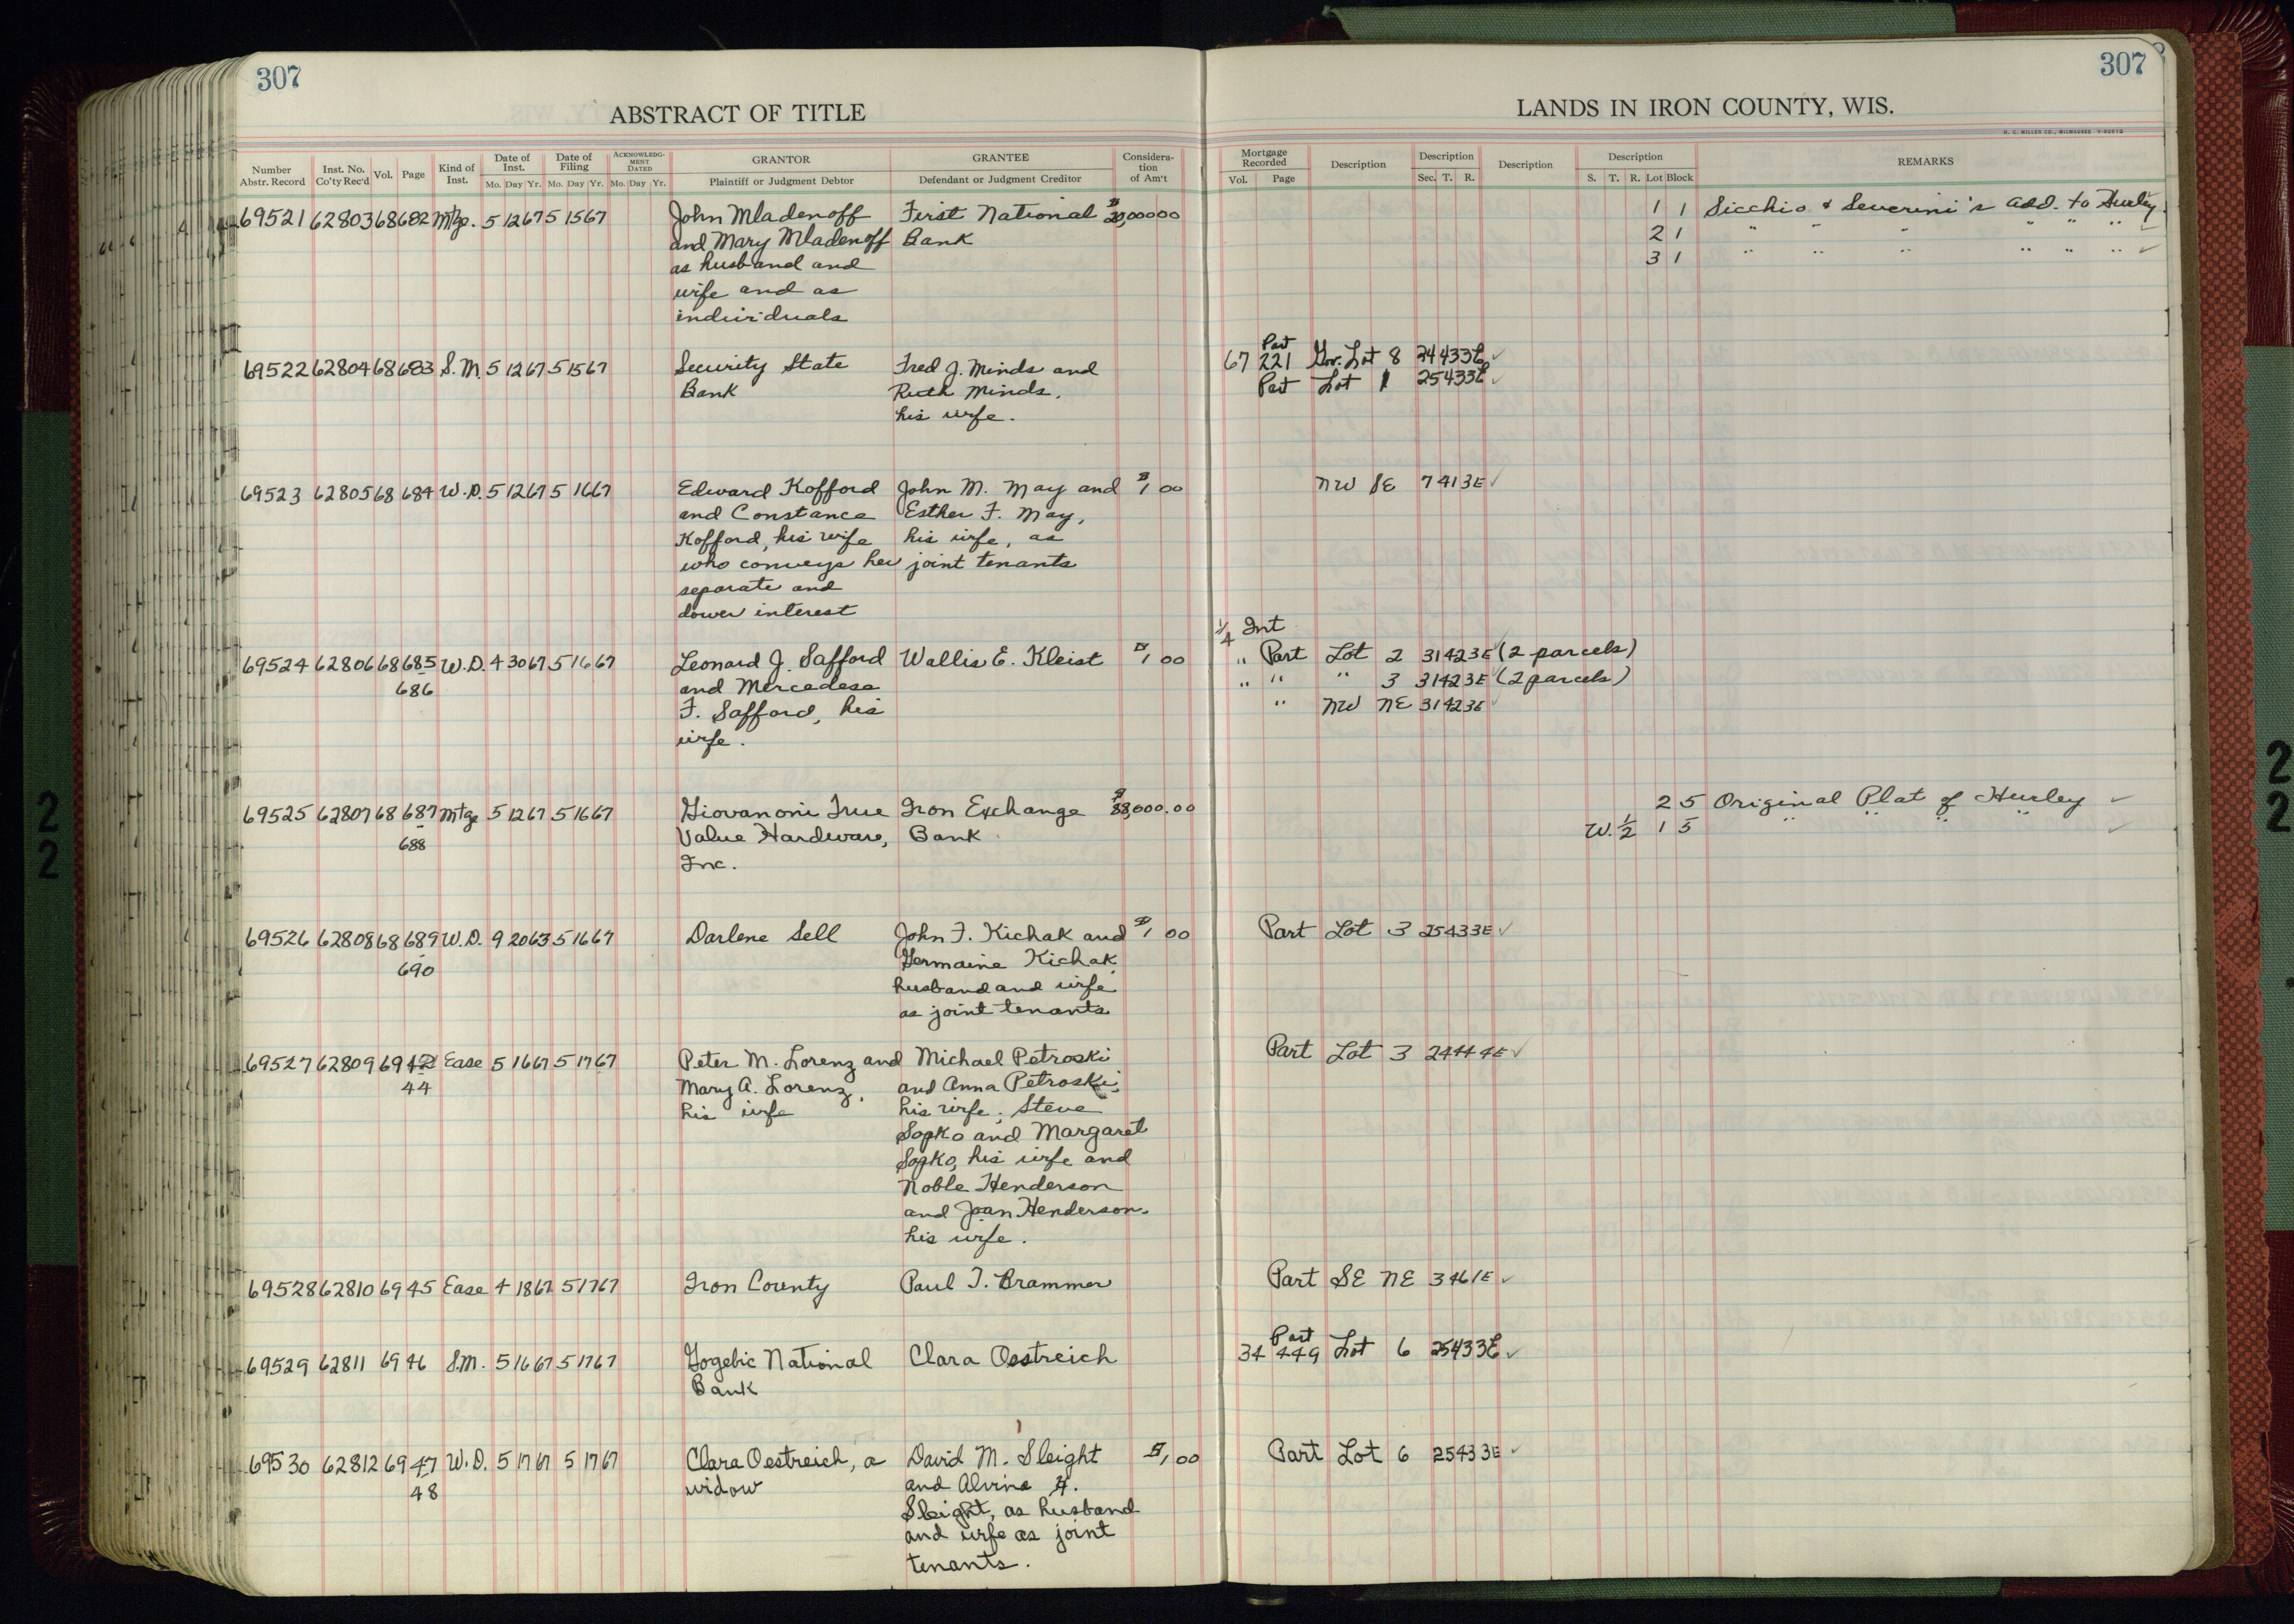 307
307
ABSTRACT OF TITLE
LANDS IN IRON COUNTY, WIS.
H. C. MILLER CO., MILWAUKEE
Number Abstr. Record | Inst. No. Co'ty Rec'd | Vol. | Page | Kind of Inst. | Date of Inst. Mo. Day Yr. | Date of Filing Mo. Day Yr. | ACKNOWLEDGMENT DATED Mo. Day Yr. | GRANTOR Plaintiff or Judgment Debtor | GRANTEE Defendant or Judgment Creditor | Considera-tion of Am't | Mortgage Recorded Vol. Page | Description | Description Sec. T. R. | Description | Description S. T. R. Lot Block | REMARKS
69521 62803 68 682 Mtge. 5 12 67 5 15 67 John Mladenoff First National $20,000 00 1 1 Sicchio & Severini's Add. to Hurley
and Mary Mladenoff Bank 2 1 " " " " " " ✓
as husband and 3 1 " " " " " " ✓
wife and as
individuals
Part
69522 62804 68 683 S.M. 5 12 67 5 15 67 Security State Fred J. Minds and 67 221 Gov. Lot 8 24 43 3E ✓
Bank Ruth Minds, Part Lot 1 25 43 3E ✓
his wife.
69523 62805 68 684 W.D. 5 12 67 5 16 67 Edward Kofford John M. May and $1 00 NW SE 7 41 3E ✓
and Constance Esther F. May,
Kofford, his wife his wife, as
who conveys her joint tenants
separate and
dower interest
1/4 Int
69524 62806 68 685 W.D. 4 30 67 5 16 67 Leonard J. Safford Wallis E. Kleist $1 00 " Part Lot 2 31 42 3E ✓ (2 parcels)
686 and Mercedese " " " 3 31 42 3E ✓ (2 parcels)
F. Safford, his " NW NE 31 42 3E ✓
wife.
69525 62807 68 687 Mtge 5 12 67 5 16 67 Giovanoni True Iron Exchange $88,000.00 2 5 Original Plat of Hurley ✓
688 Value Hardware, Bank W. 1/2 1 5 " " " " ✓
Inc.
69526 62808 68 689 W.D. 9 20 63 5 16 67 Darlene Sell John F. Kichak and $1 00 Part Lot 3 25 43 3E ✓
690 Germaine Kichak,
husband and wife
as joint tenants
69527 62809 69 42 Ease 5 16 67 5 17 67 Peter M. Lorenz and Michael Petroski Part Lot 3 24 44 4E ✓
44 Mary A. Lorenz, and Anna Petroski,
his wife his wife; Steve
Sopko and Margaret
Sopko, his wife and
Noble Henderson
and Joan Henderson,
his wife.
69528 62810 69 45 Ease 4 18 67 5 17 67 Iron County Paul T. Brammer Part SE NE 3 46 1E ✓
Part
69529 62811 69 46 S.M. 5 16 67 5 17 67 Gogebic National Clara Oestreich 34 449 Lot 6 25 43 3E ✓
Bank
69530 62812 69 47 W.D. 5 17 67 5 17 67 Clara Oestreich, a David M. Sleight $1,00 Part Lot 6 25 43 3E ✓
48 widow and Alvina H.
Sleight, as husband
and wife as joint
tenants.
2
2
2
2